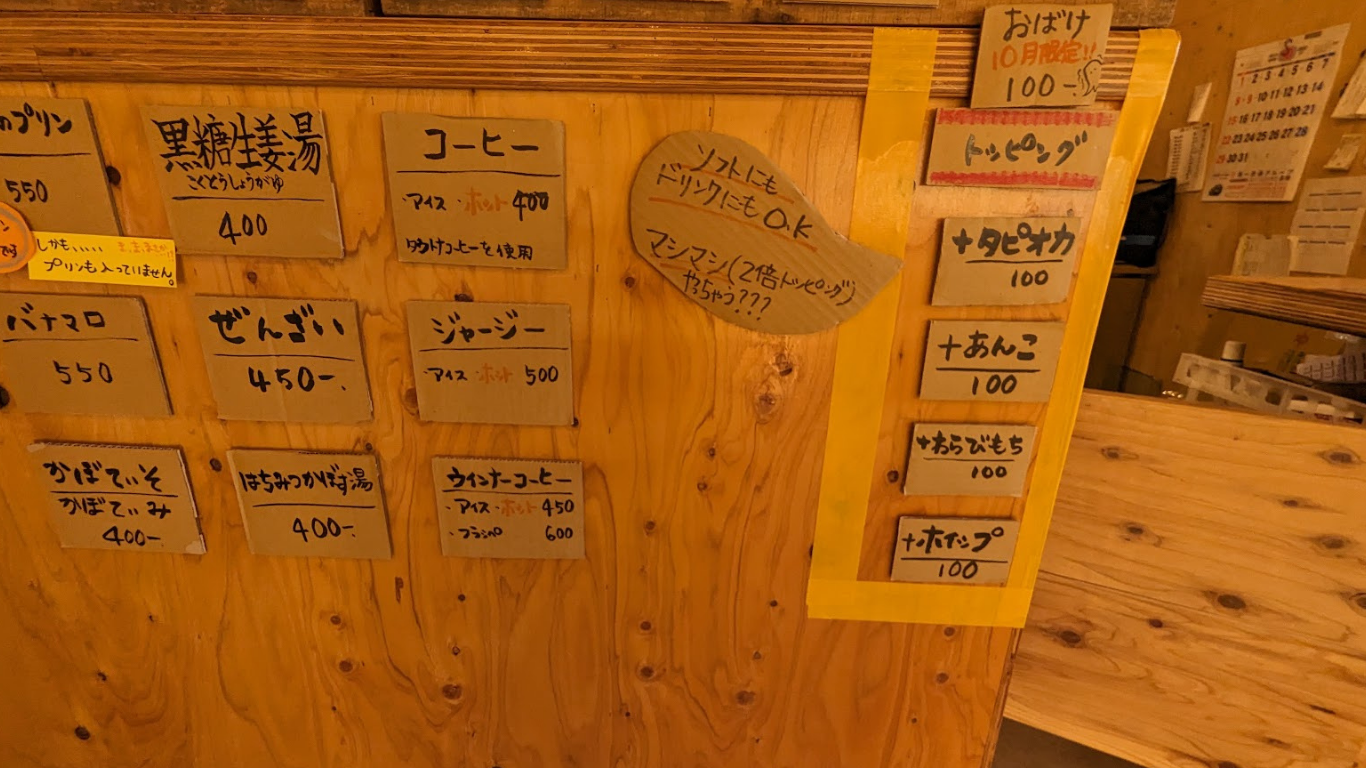 のプリン
550
しかも、、、、、
プリンも入っていません。
黒糖生姜湯
こくとうしょうがゆ
400
コーヒー
・アイス・ホット 400
バナマロ
550
ぜんざい
450-.
ジャージー
・アイス・ホット 500
かぼてぃそ
かぼてぃみ
400-.
はちみつかぼす湯
400-.
ウインナーコーヒー
・アイス・ホット 450
・フラッペ 600
ソフトにも
ドリンクにもO.K
マシマシ(2倍トッピング)
やっちゃう???
おばけ
10月限定!!
100-
トッピング
+タピオカ
100
+あんこ
100
+わらびもち
100
+ホイップ
100
1 2 3 4 5 6 7
8 9 10 11 12 13 14
15 16 17 18 19 20 21
22 23 24 25 26 27 28
29 30 31